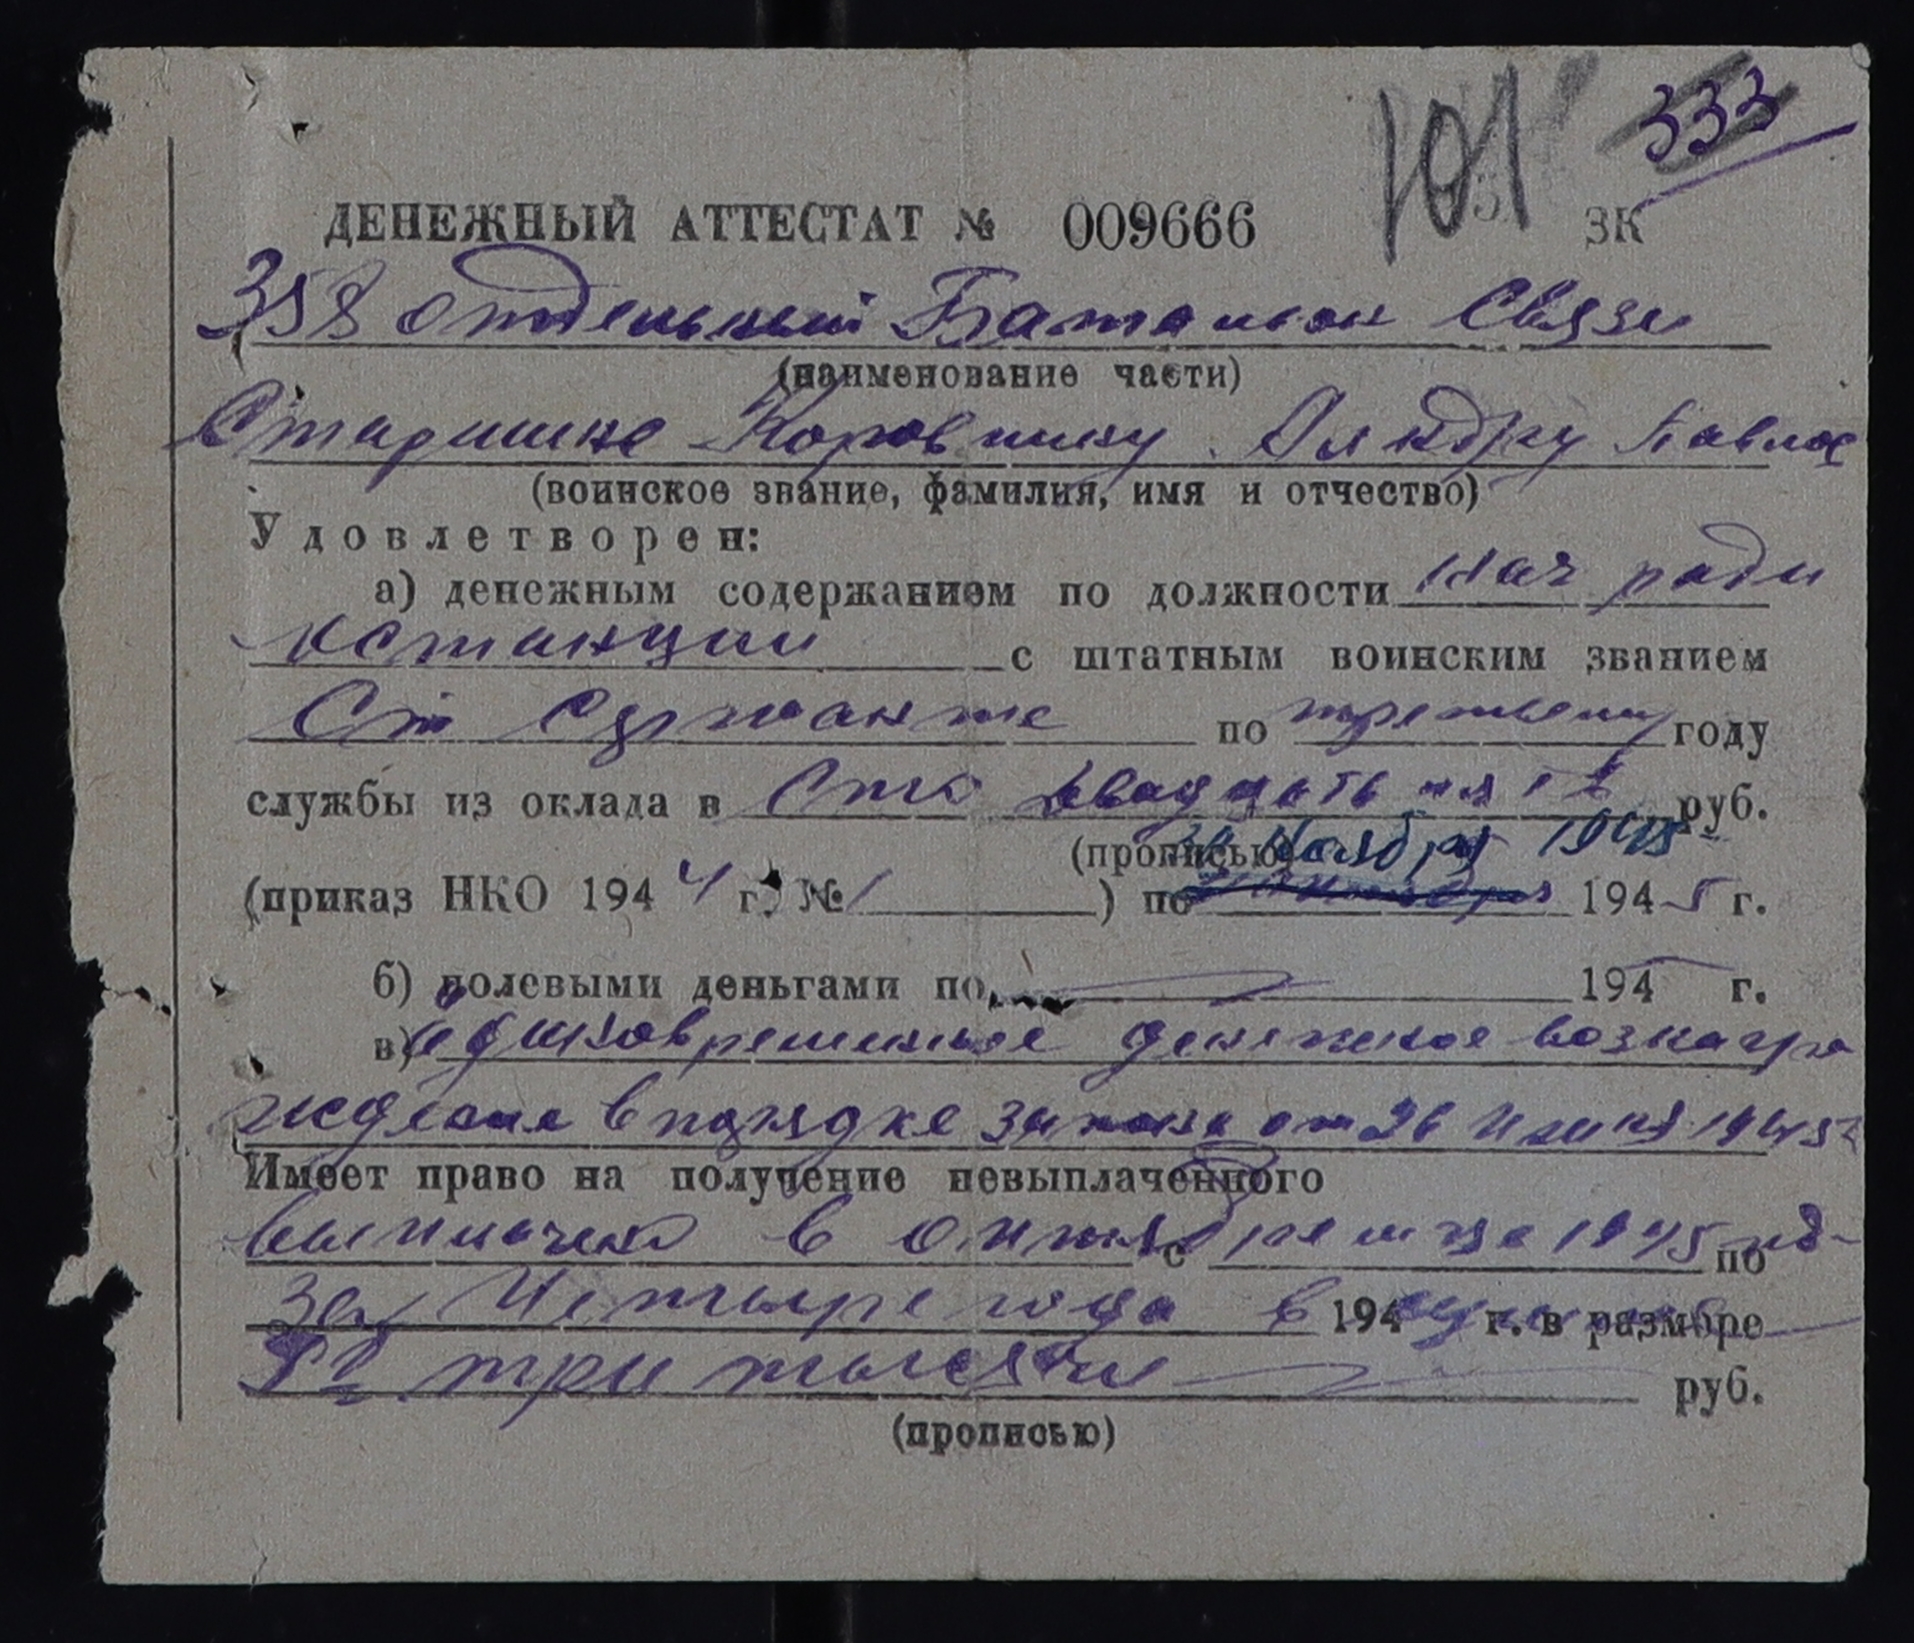 333
101
ДЕНЕЖНЫЙ АТТЕСТАТ № 009666 ЗК
358 отдельный Батальон Связи
(наименование части)
Старшине Коровину Павлов
(воинское звание, фамилия, имя и отчество)
Удовлетворен:
а) денежным содержанием по должности Нач ради
останции с штатным воинским званием
Ст Сержанта по третьему году
службы из оклада в Сто двадцать пять руб.
(прописью) Ноября 1945
(приказ НКО 1944 г. № 1 ) по 1945 г.
б) полевыми деньгами по 194 г.
в) единовременное денежное вознагра
ждение в порядке закона от 26 Июня 1945г
Имеет право на получение невыплаченного
выплачено в октябре м-це 1945 с по
за Четыре года в 194 г. в размере
три тысячи руб.
(прописью)